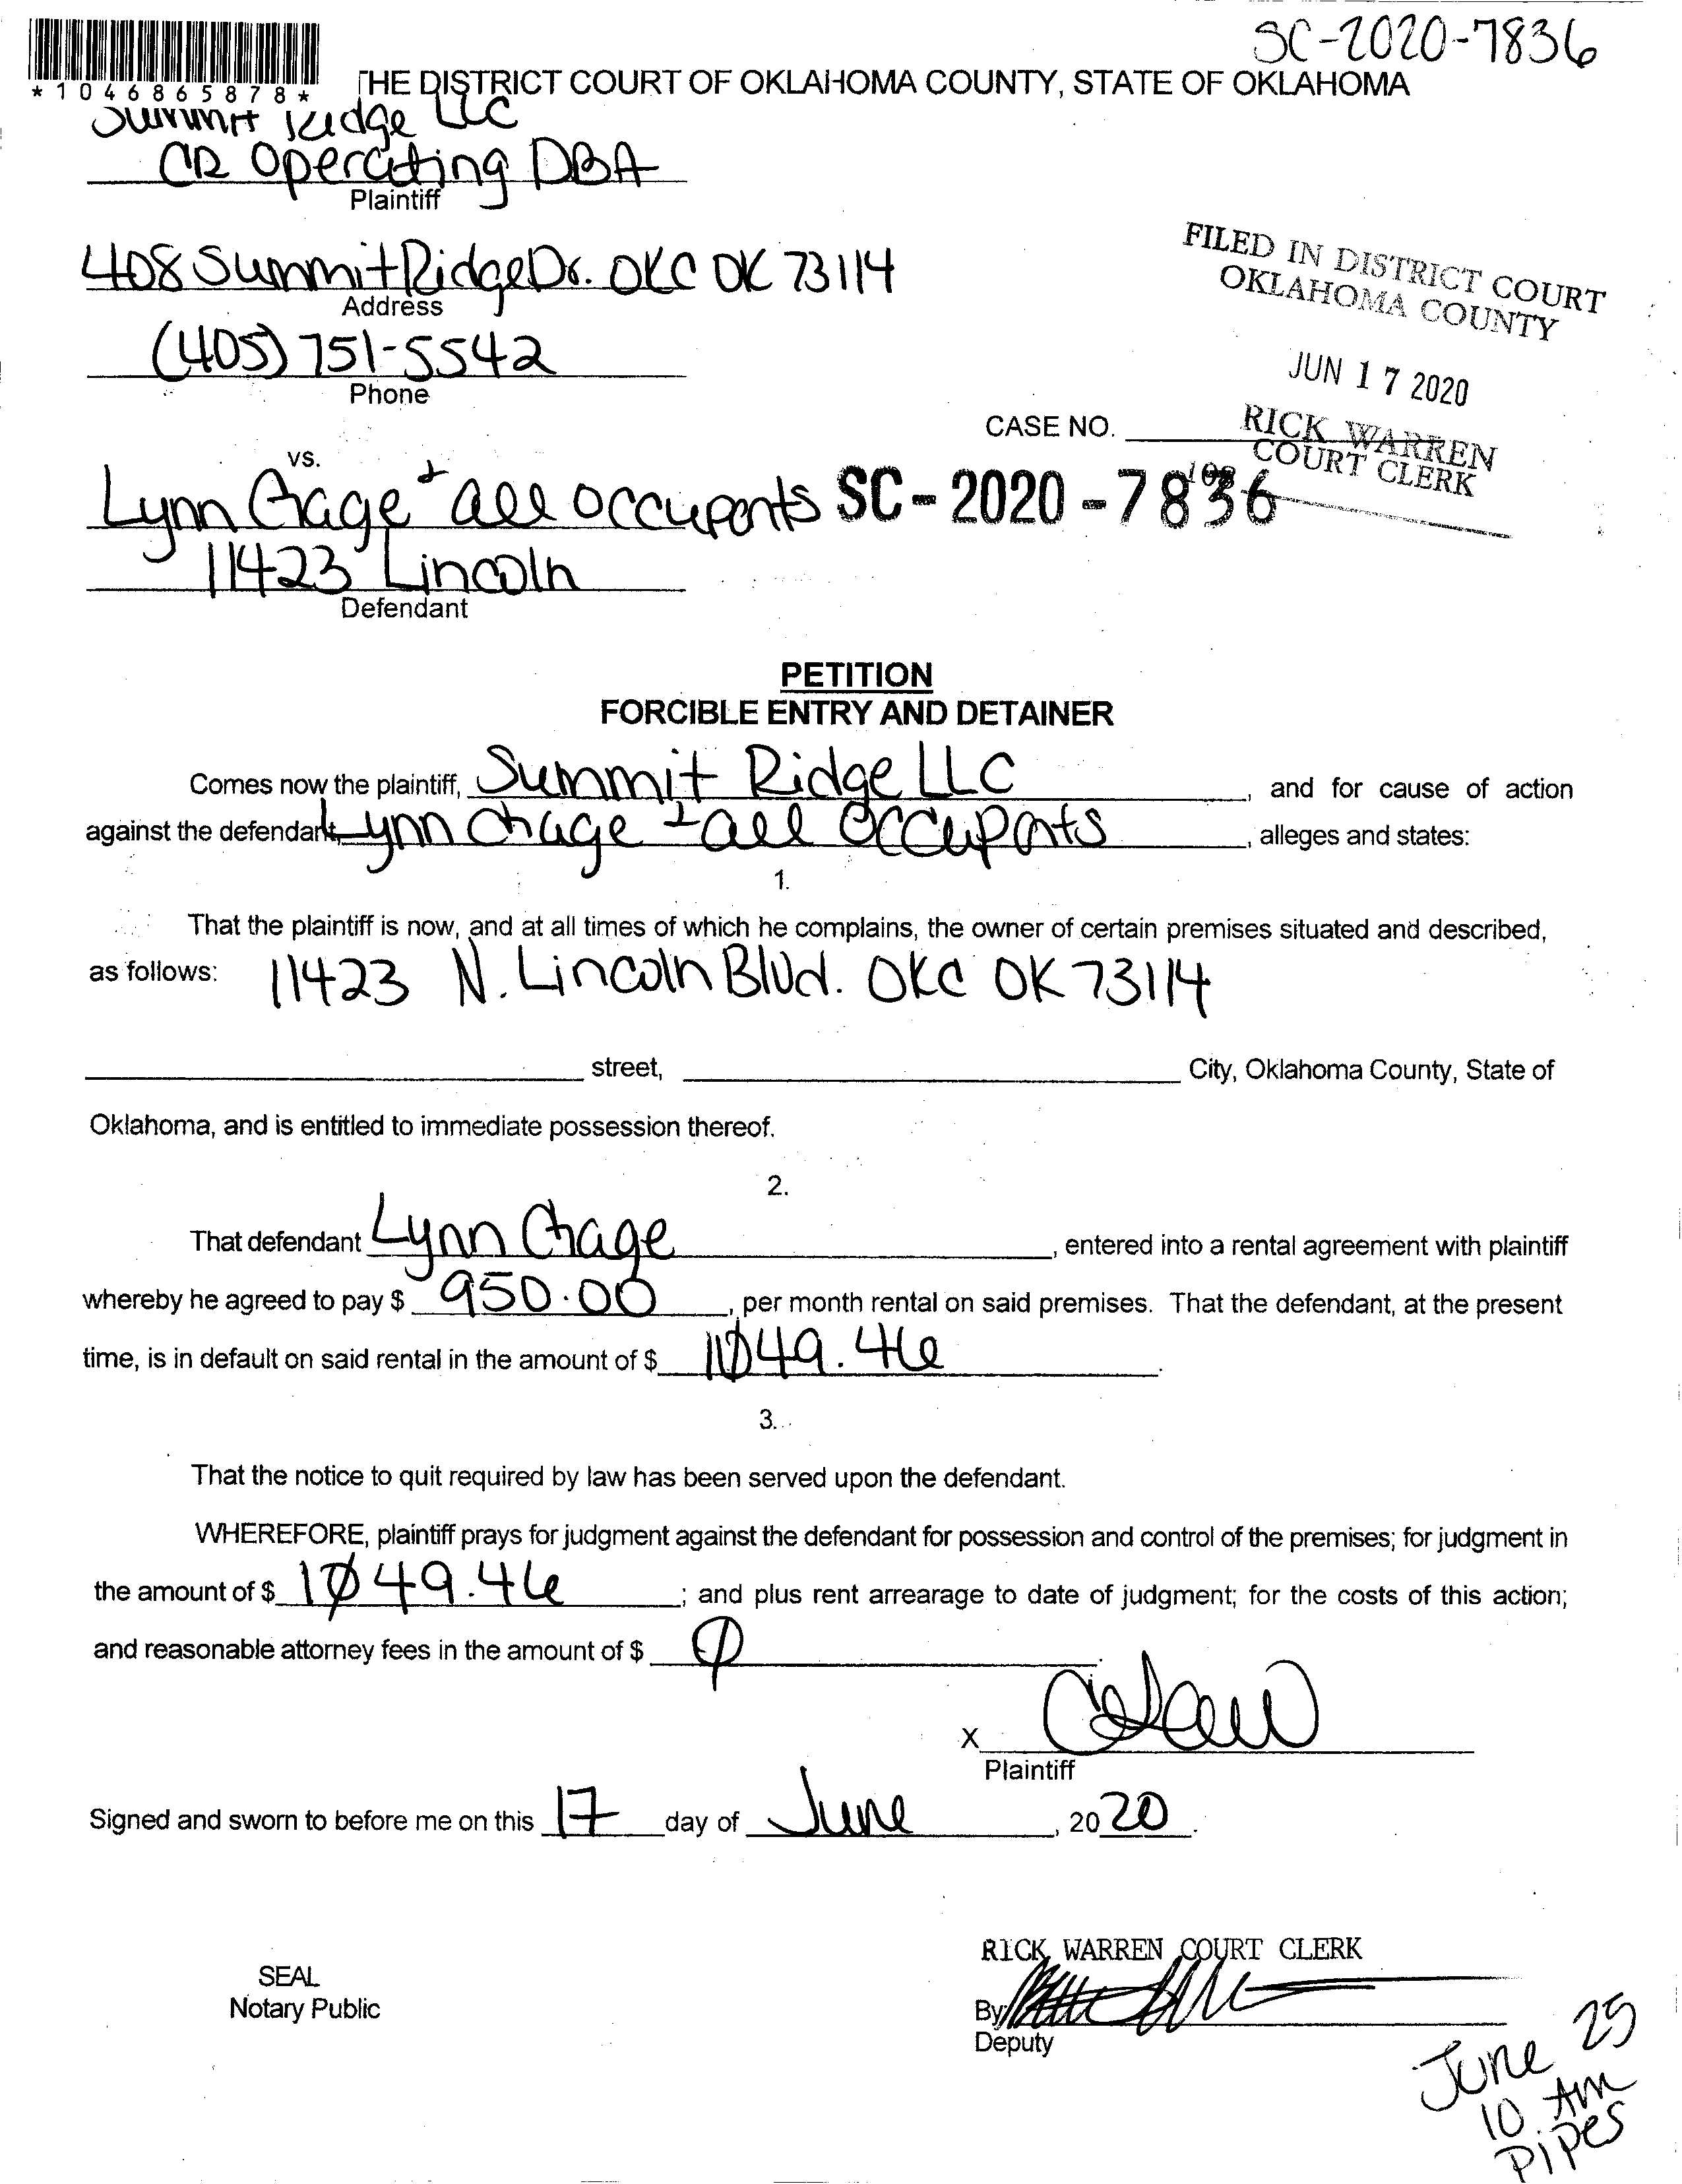 SC-2020-7836
*1046865878*
THE DISTRICT COURT OF OKLAHOMA COUNTY, STATE OF OKLAHOMA
Summit Ridge LLC
CR Operating DBA
Plaintiff
408 Summit Ridge Dr. OKC OK 73114
Address
(405) 751-5542
Phone
FILED IN DISTRICT COURT
OKLAHOMA COUNTY
JUN 17 2020
RICK WARREN
COURT CLERK
CASE NO.
vs.
Lynn Chage + all occupants SC-2020-7836
11423 Lincoln
Defendant
PETITION
FORCIBLE ENTRY AND DETAINER
Comes now the plaintiff, Summit Ridge LLC, and for cause of action
against the defendant, Lynn Chage + all occupants, alleges and states:
1.
That the plaintiff is now, and at all times of which he complains, the owner of certain premises situated and described,
as follows: 11423 N. Lincoln Blvd. OKC OK 73114
street, City, Oklahoma County, State of
Oklahoma, and is entitled to immediate possession thereof.
2.
That defendant Lynn Chage, entered into a rental agreement with plaintiff
whereby he agreed to pay $ 950.00, per month rental on said premises. That the defendant, at the present
time, is in default on said rental in the amount of $ 1049.46.
3.
That the notice to quit required by law has been served upon the defendant.
WHEREFORE, plaintiff prays for judgment against the defendant for possession and control of the premises; for judgment in
the amount of $ 1049.46; and plus rent arrearage to date of judgment; for the costs of this action;
and reasonable attorney fees in the amount of $ 0.
X
Plaintiff
Signed and sworn to before me on this 17 day of June, 2020.
SEAL
Notary Public
RICK WARREN COURT CLERK
By
Deputy
June 25
10 Am
Pipes